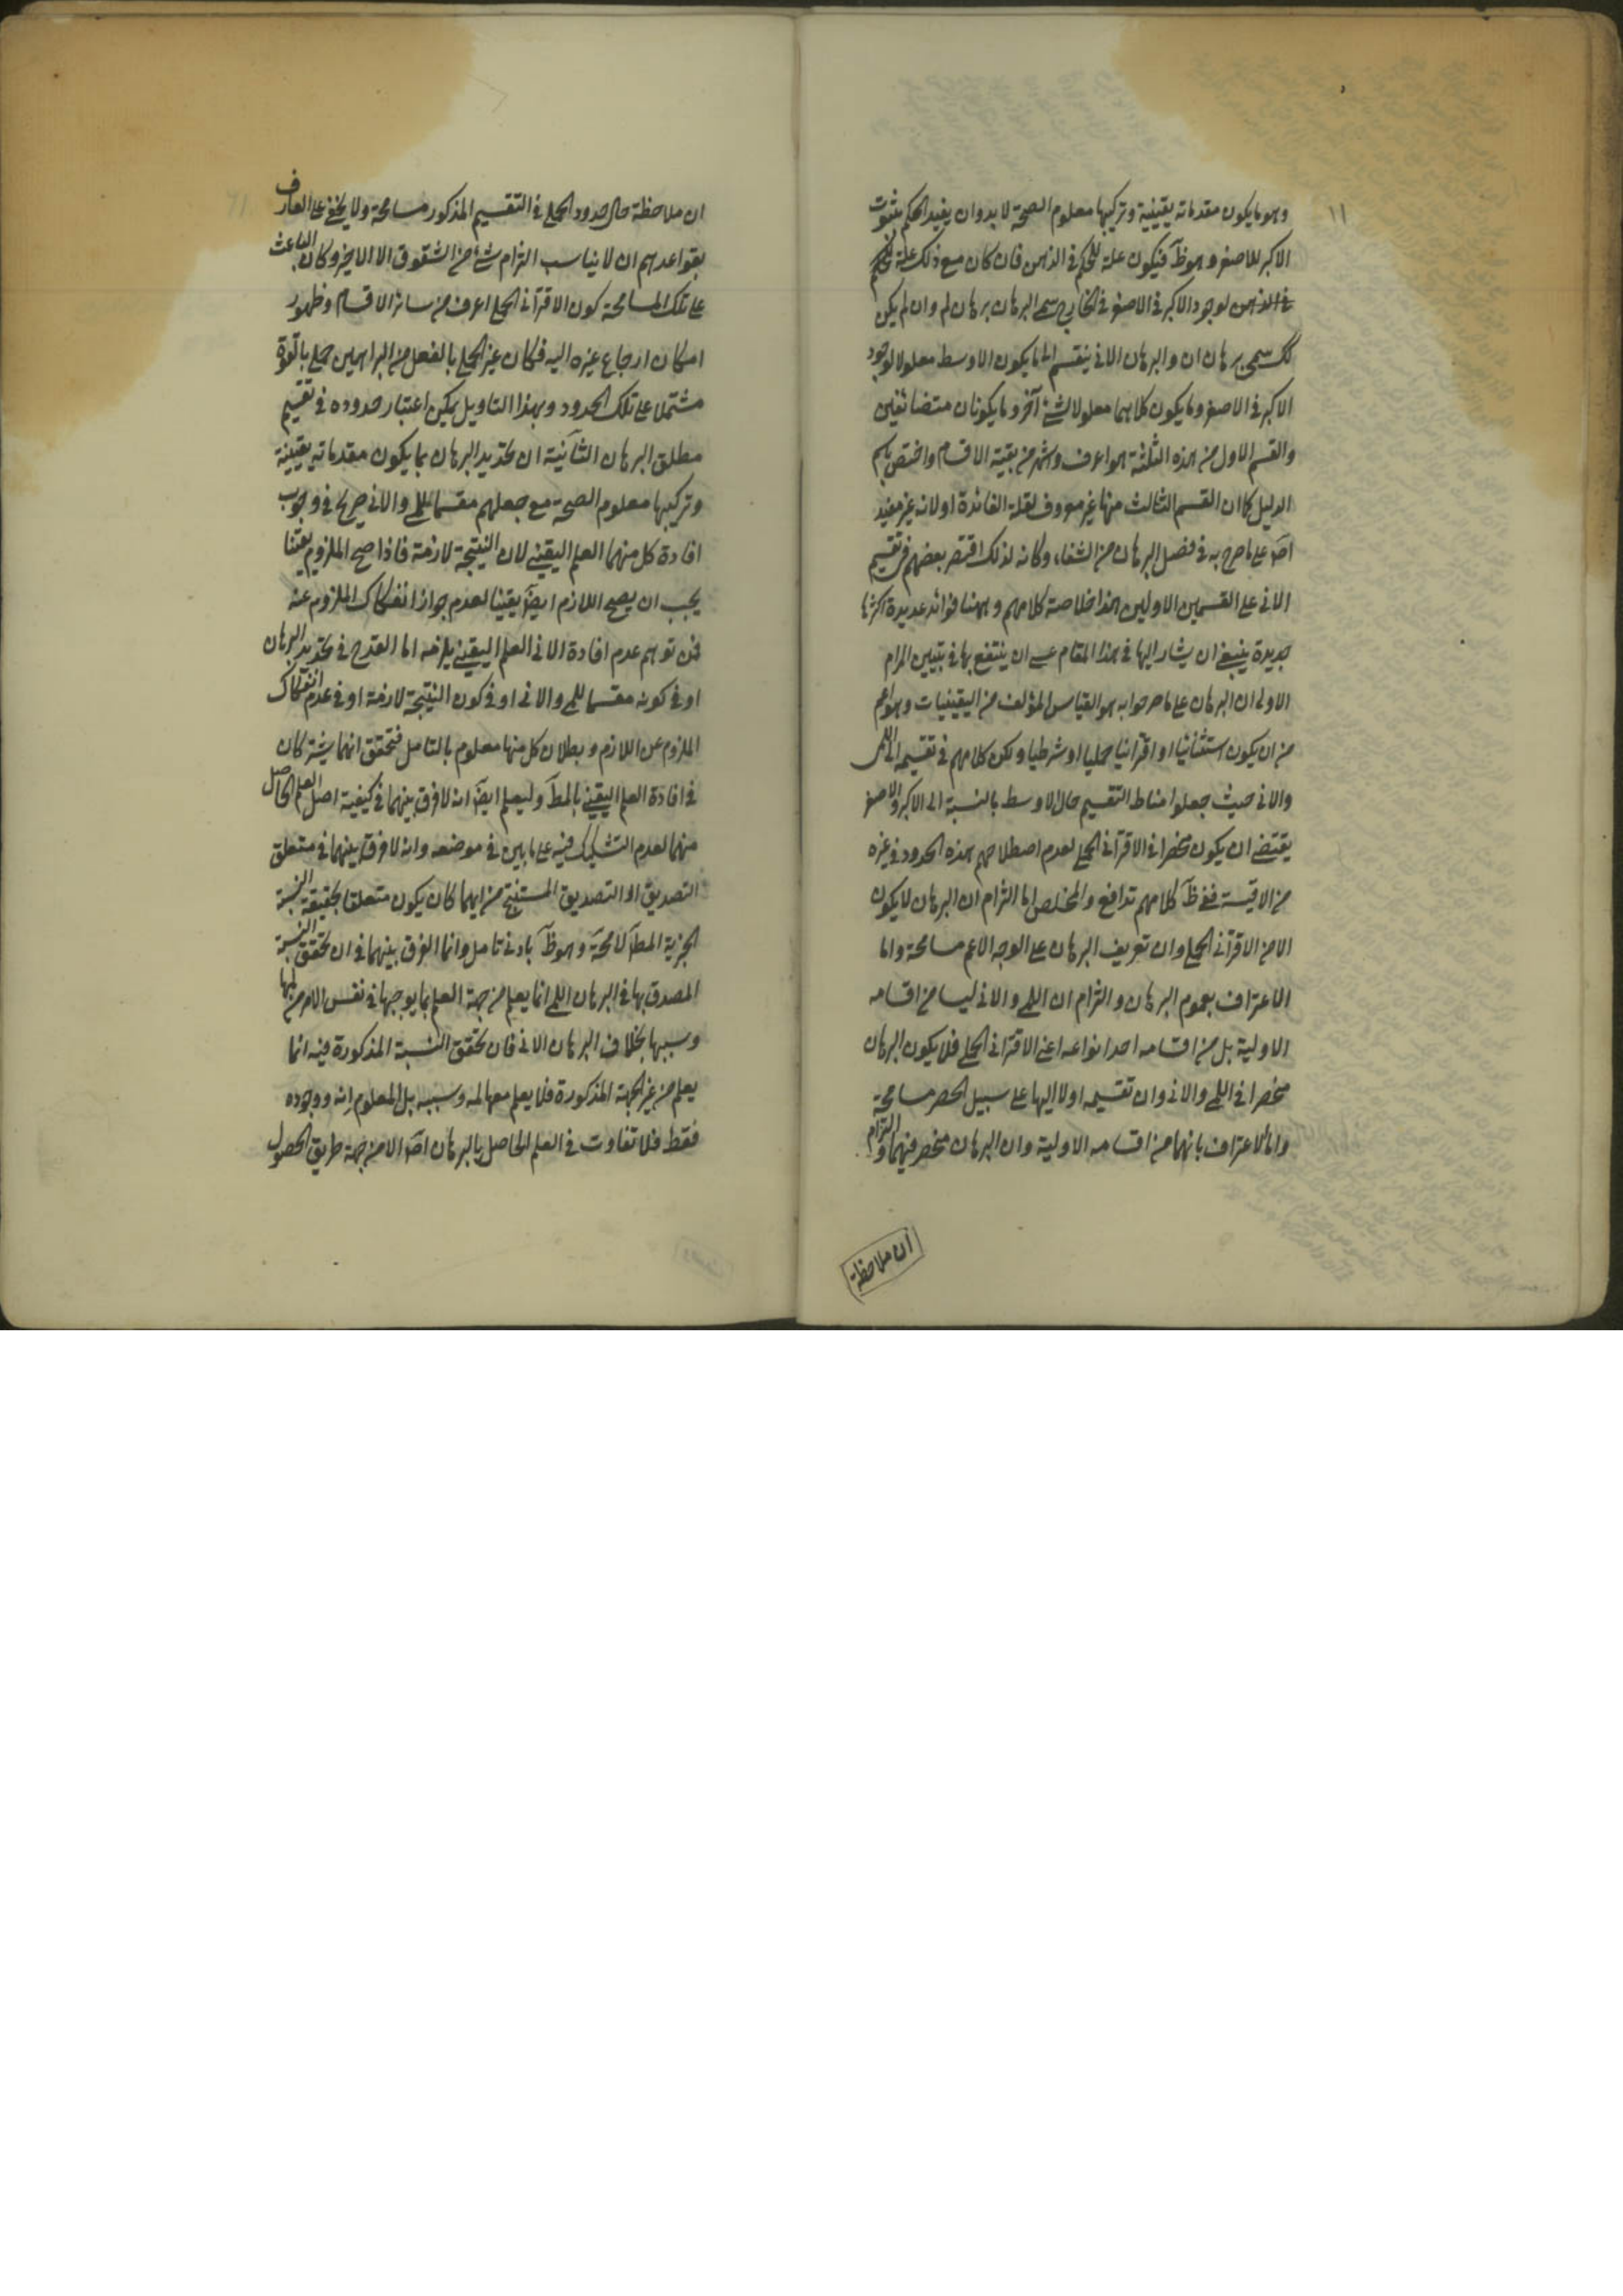 ١١
وهو ما يكون مقدماته يقينية وتركيبها معلوم الصحة لا بد وان يفيد الحكم بثبوت
الاكبر للاصغر وهو ظآ فيكون علة للحكم في الذهن فان كان مع ذلك علة
في الذهن لوجود الاكبر في الاصغر في الخارج سمى البرهان برهان لم وان لم يكن
كك سمى برهان ان والبرهان الاني ينقسم الى ما يكون الاوسط معلولا لوجود
الاكبر في الاصغر وما يكون كلاهما معلولا لشئ آخر وما يكونان متضائفين
والقسم الاول من هذه الثلثة هو اعرف واشهر من بقية الاقسام واختص باسم
الدليل كما ان القسم الثالث منها غير معروف لقلة الفائدة او لانه غير مفيد
اصآ على ما صرح به في فصل البرهان من الشفاء وكانه لذلك اقتصر بعضهم في تقسيم
الاني على القسمين الاولين هذا خلاصة كلامهم وههنا فوائد عديدة اكثرها
جديرة ينبغي ان يشار اليها في هذا المقام عسى ان ينتفع بها في تبيين المرام
الاولى ان البرهان على ما صرحوا به هو القياس المؤلف من اليقينيات وهو اعم
من ان يكون استثنائيا او اقترانيا حمليا او شرطيا ولكن كلامهم في تقسيمه الى اللمى
والاني حيث جعلوا مناط التقسيم حال الاوسط بالنسبة الى الاكبر والاصغر
يقتضى ان يكون منحصرا في الاقترانى الحملى لعدم اصطلاحهم بهذه الحدود في غيره
من الاقيسة ففى ظآ كلامهم تدافع والمخلص اما التزام ان البرهان لا يكون
الا من الاقترانى الحملى وان تعريف البرهان على الوجه الاعم مسامحة واما
الاعتراف بعموم البرهان والتزام ان اللمى والانى ليسا من اقسامه
الاولية بل من اقسامه احد انواعه اعنى الاقترانى الحملى فلا يكون البرهان
منحصرا في اللمى والانى وان تقسيمه اولا اليها على سبيل الحصر مسامحة
واما الاعتراف بانهما من اقسامه الاولية وان البرهان منحصر فيهما والتزام
ان ملاحظة
ان ملاحظة حال حدود الحملى في التقسيم المذكور مسامحة ولا يخفى على العارف
بقواعدهم ان لا يناسب التزام شئ من الشقوق الا الاخير وكان الباعث
على تلك المسامحة كون الاقترانى الحملى اعرف من سائر الاقسام وظهور
امكان ارجاع غيره اليه فكان غير الحملى بالفعل من البراهين حملى بالقوة
مشتملا على تلك الحدود وبهذا التاويل يمكن اعتبار حدوده في تقسيم
مطلق البرهان الثانية ان تحديد البرهان بما يكون مقدماته يقينية
وتركيبها معلوم الصحة مع جعلهم مقسما للمى والانى صريح في وجوب
افادة كل منهما العلم اليقينى لان النتيجة لازمة فاذا صح الملزوم يقينا
يجب ان يصح اللازم ايضآ يقينا لعدم جواز انفكاك الملزوم عنه
فمن توهم عدم افادة الانى العلم اليقينى يلزمه اما القدح في تحديد البرهان
او في كونه مقسما للمى والانى او في كون النتيجة لازمة او في عدم انفكاك
الملزوم عن اللازم وبطلان كل منها معلوم بالتامل فتحقق انهما يشتركان
في افادة العلم اليقينى بالمطآ وليعلم ايضآ انه لا فرق بينهما في كيفية اصل العلم الحاصل
منهما لعدم التشكيك فيه على ما بين في موضعه وانه لا فرق بينهما في متعلق
التصديق اذ التصديق المستنتج من ايهما كان يكون متعلقا بحقيقة النسبة
الخبرية المطآ لا محة وهو ظآ بادنى تامل وانما الفرق بينهما في ان تحقق النسبة
المصدق بها في البرهان اللمى انما يعلم من جهة العلم بما يوجبها في نفس الامر من لمها
وسببها بخلاف البرهان الانى فان تحقق النسبة المذكورة فيه انما
يعلم من غير الجهة المذكورة فلا يعلم معها لمه وسببه بل المعلوم انه ووجوده
فقط فلا تفاوت في العلم الحاصل بالبرهان اصآ الا من جهة طريق الحصول